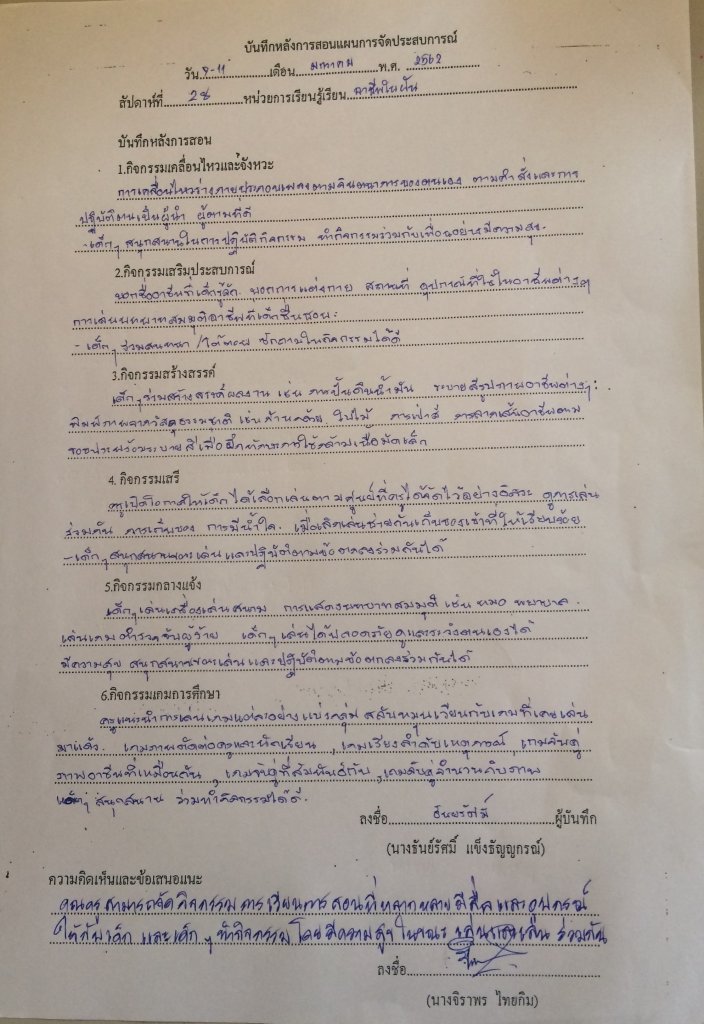 บันทึกหลังการสอนแผนการจัดประสบการณ์
วัน 7-11 เดือน มกาคม พ.ศ. 2562
สัปดาห์ที่ 28 หน่วยการเรียนรู้เรียน อาชีพในฝัน
บันทึกหลังการสอน
1.กิจกรรมเคลื่อนไหวและจังหวะ
การเคลื่อนไหวร่างกายประกอบเพลงตามจินตนาการของตนเอง ตามคำสั่งและการ
ปฏิบัติตนเป็นผู้นำ ผู้ตามที่ดี
-เด็กๆ สนุกสนานในการปฏิบัติกิจกรรม ทำกิจกรรมร่วมกับเพื่อนอย่างมีความสุข.
2.กิจกรรมเสริมประสบการณ์
บอกชื่ออาชีพที่เด็กรู้จัก บอกการแต่งกาย สถานที่ อุปกรณ์ที่ใช้ในอาชีพต่างๆ
การเล่นบทบาทสมมุติอาชีพที่เด็กชื่นชอบ
- เด็กๆ ร่วมสนทนา /โต้ตอบ ซักถามในกิจกรรมได้ดี
3.กิจกรรมสร้างสรรค์
เด็กๆ ร่วมสร้างสรรค์ผลงาน เช่น การปั้นดินน้ำมัน ระบายสีรูปภาพอาชีพต่างๆ
พิมพ์ภาพจากวัสดุธรรมชาติ เช่น ก้านกล้วย ใบไม้ การเป่าสี การลากเส้นอาชีพตาม
รอยประพร้อมระบายสีเพื่อฝึกทักษะการใช้กล้ามเนื้อมัดเล็ก
4. กิจกรรมเสรี
ครูเปิดโอกาสให้เด็กได้เลือกเล่นตามศูนย์ที่ครูได้จัดไว้อย่างอิสระ ดูการเล่น
ร่วมกัน การเก็บของ การมีน้ำใจ. เมื่อเลิกเล่นช่วยกันเก็บของเข้าที่ให้เรียบร้อย
-เด็กๆ สนุกสนานการเล่นและปฏิบัติตามข้อตกลงร่วมกันได้
5.กิจกรรมกลางแจ้ง
เด็กๆ เล่นเครื่องเล่นสนาม การแสดงบทบาทสมมุติ เช่น หมอ พยาบาล.
เล่นเกมตำรวจจับผู้ร้าย เด็กๆ เล่นได้ปลอดภัยดูแลระวังตนเองได้
มีความสุข สนุกสนานการเล่นและปฏิบัติตามข้อตกลงร่วมกันได้
6.กิจกรรมเกมการศึกษา
ครูแนะนำการเล่นเกมแต่ละอย่างแบ่งกลุ่ม สลับหมุนเวียนกับเกมที่เคยเล่น
มาแล้ว. เกมภาพตัดต่อครูและนักเรียน , เกมเรียงลำดับเหตุการณ์ , เกมจับคู่
ภาพอาชีพที่เหมือนกัน , เกมจับคู่ที่สัมพันธ์กัน , เกมจับคู่จำนวนกับภาพ
เด็กๆ สนุกสนาน ร่วมทำกิจกรรมได้ดี.
ลงชื่อ ธันย์รัศมิ์ ผู้บันทึก
(นางธันย์รัศมิ์ แข็งธัญญกรณ์)
ความคิดเห็นและข้อเสนอแนะ
คุณครูสามารถจัดกิจกรรมการเรียนการสอนที่หลากหลาย มีสื่อและอุปกรณ์
ให้กับเด็ก และเด็กๆ ทำกิจกรรมโดยมีความสุขในขณะ ร่วมกัน
ลงชื่อ
(นางจิราพร ไทยกิม)